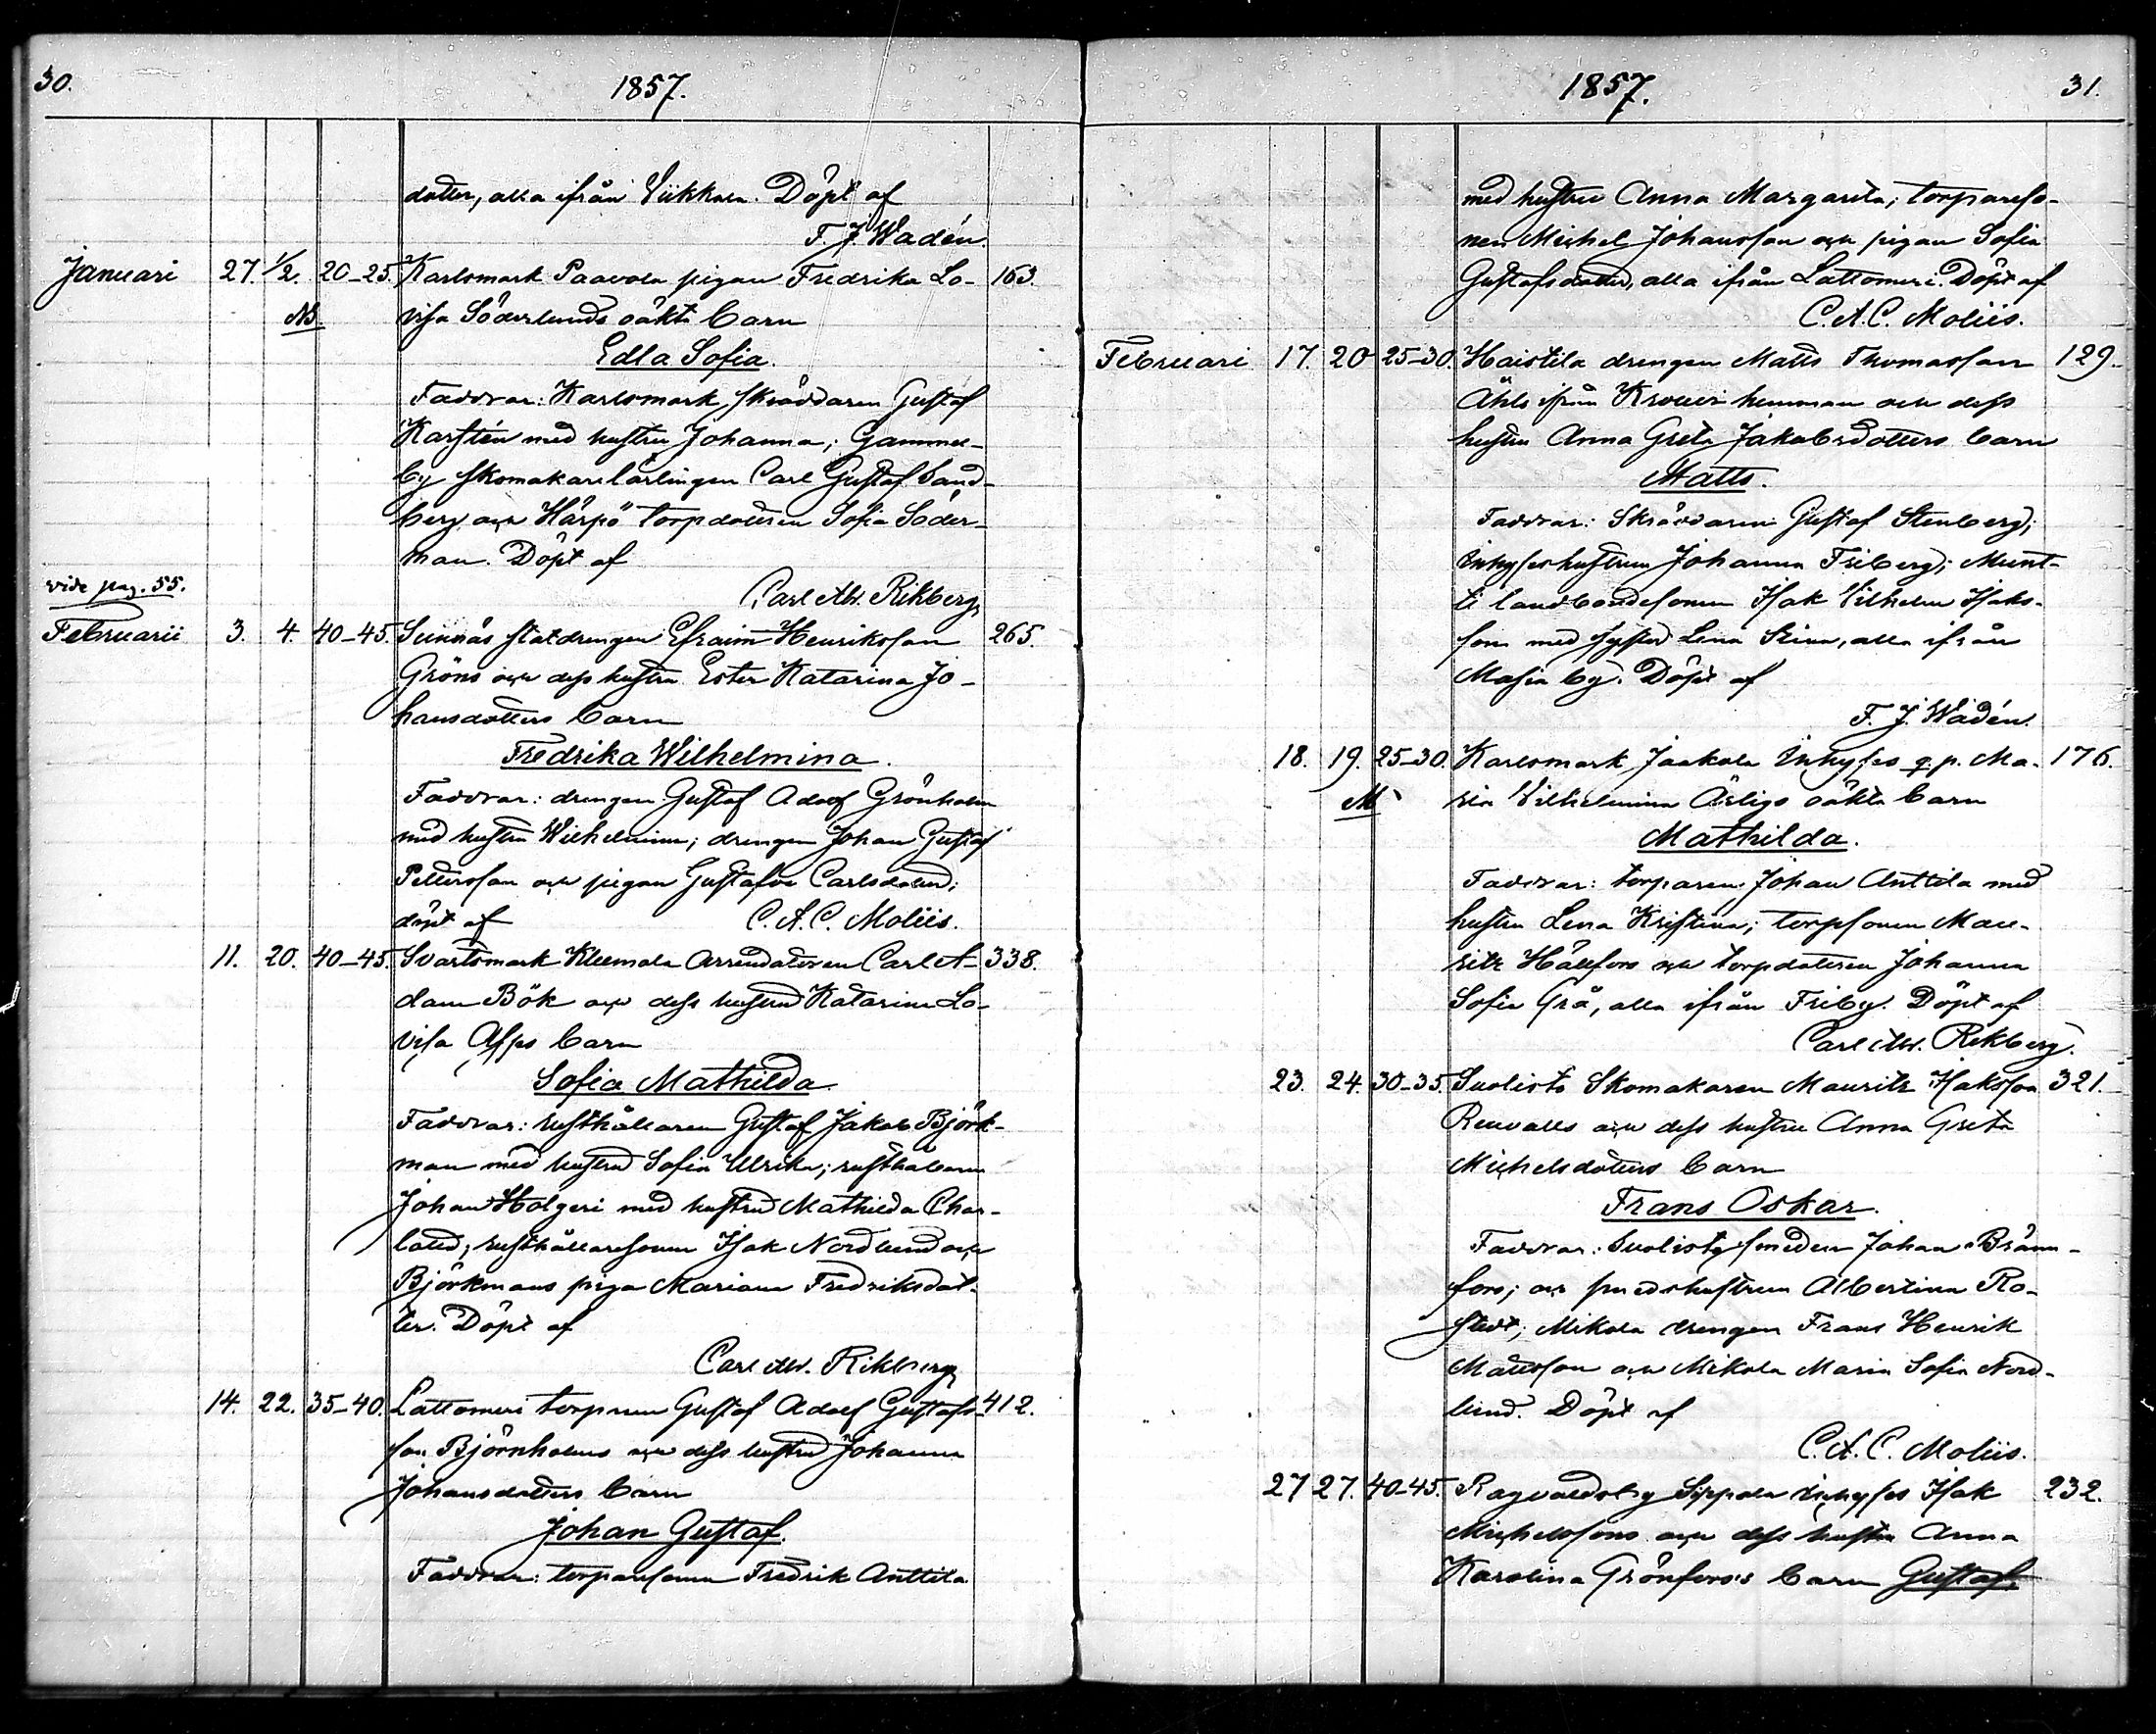 30.
1857.
dotter, alla ifrån Viikkala. Döpt af
F. J. Wadén.
Januari 27. 1/2. 20-25. Karlsmark Paavola pigan Fredrika Lo- 163.
visa Söderlunds oäkta barn
Edla Sofia.
Faddrar: Karlsmark skräddaren Gustaf
Karstén med hustru Johanna; Gammel-
by skomakarelärlingen Carl Gustaf Sand-
berg och Härpö torpdottren Sofia Söder-
man. Döpt af
vide pag. 55.
Carl Rikberg
Februarii 3. 4. 40-45. Sunnäs statdrengen Efraim Henriksson 265.
Gröns och dess hustru Ester Katarina Jo-
hansdotters barn
Fredrika Wilhelmina.
Faddrar: drengen Gustaf Adolf Grönholm
med hustru Wilhelmina; drengen Johan Gustaf
Pettersson och pigan Gustafva Carlsdotter;
döpt af C. A. C. Moliis.
11. 20. 40-45. Svartsmark Kleemola Arrendatoren Carl A- 338.
dam Bök och dess hustru Katarina Lo-
visa Asps barn
Sofia Mathilda
Faddrar: rusthållaren Gustaf Jakob Björk-
man med hustru Sofia Ulrika; rusthållaren
Johan Holgeri med hustru Mathilda Char-
lotta; rusthållaresonen Isak Nordlund och
Björkmans piga Mariana Fredriksdot-
ter. Döpt af
Carl Rikberg
14. 22. 35-40. Lattomeri torparen Gustaf Adolf Gustafs- 412.
son Björnholms och dess hustru Johanna
Johansdotters barn
Johan Gustaf.
Faddrar: torparesonen Fredrik Anttila
1857.
31.
med hustru Anna Margareta; torpareso-
nen Michel Johansson och pigan Sofia
Gustafsdotter, alla ifrån Lattomeri. Döpt af
C. A. C. Moliis.
Februari 17. 20 25-30. Haistila drengen Matts Thomasson 129.
Åhls ifrån Krouvi hemman och dess
hustru Anna Greta Jakobsdotters barn
Matts.
Faddrar: Skräddaren Gustaf Stenberg;
Inhyseshustrun Johanna Friberg; Munt-
ti landbondesonen Isak Vilhelm Isaks-
son med syster Lena Stina, alla ifrån
Masia by. Döpt af
F. J. Wadén.
18. 19. 25-30. Karlsmark Jaakola Inhyses q. p. Ma- 176.
ria Vilhelmina Ärligs oäkta barn
Mathilda.
Faddrar: torparen Johan Anttila med
hustru Lena Kristina; torpsonen Mau-
ritz Hällfors och torpdottren Johanna
Sofia Grå, alla ifrån Friby. Döpt af
Carl Rikberg.
23. 24. 30-35. Suolisto Skomakaren Mauritz Isaksson 321.
Renvalls och dess hustru Anna Greta
Michelsdotters barn
Frans Oskar.
Faddrar: Suolisto smeden Johan Bränn-
fors; och smedshustrun Albertina Ro-
stedt; Mikola drengen Frans Henrik
Mattsson och Mikola Maria Sofia Nord-
lund. Döpt af
C. A. C. Moliis.
27 27. 40-45. Ragvaldsby Sippola inhyses Isak 232.
Michelssons och dess hustru Anna
Karolina Grönfors's barn Gustaf.